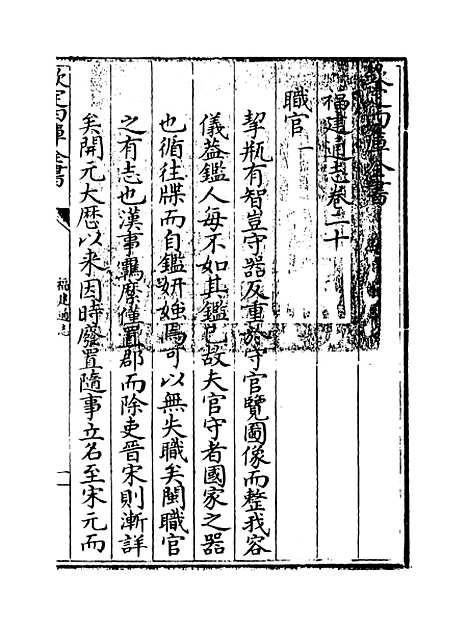 欽定四庫全書
福建通志卷二十
職官一
挈瓶有智豈守器反重於守官覽圖像而整我容
儀葢鑑人每不如其鑑已故夫官守者國家之器
也循往牒而自鑑妍媸焉可以無失職矣閩職官
之有志也漢事羈縻僅置郡而除吏晉宋則漸詳
矣開元大厯以来因時廢置隨事立名至宋元而
欽定四庫全書
福建通志
一